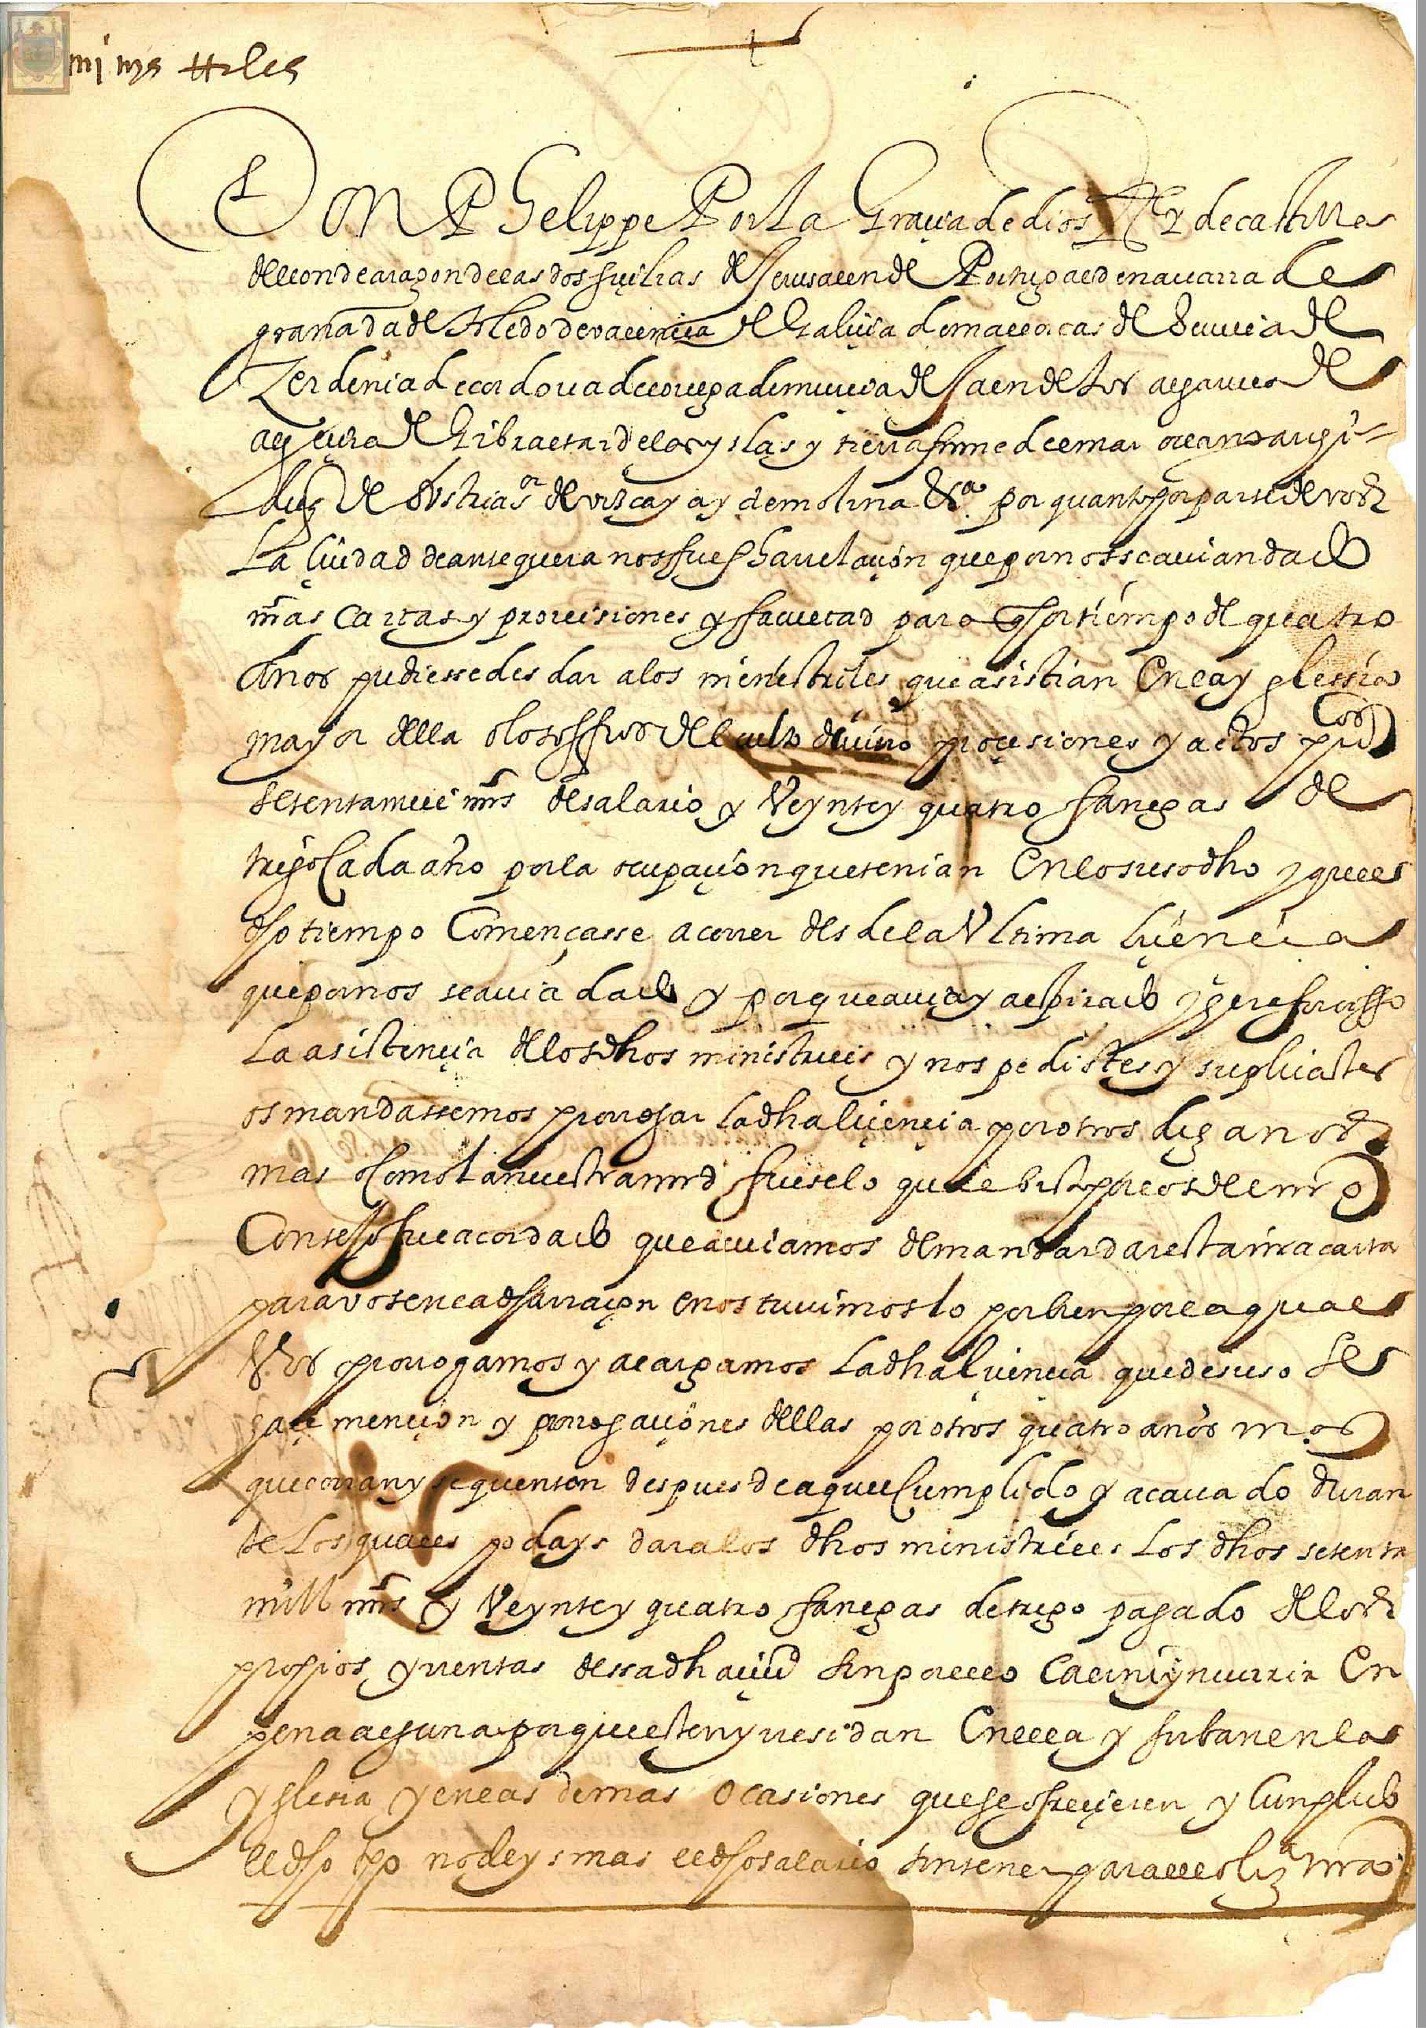 Don Phelippe Por la Graçia de dios Rey de castilla
de leon de aragon de las dos siçilias de Jerusalen de Portugal de navarra de
granada de tledo de valençia de Galiçia de mallorcas de Sevilla de
Zerdenia de cordova de corçega de murcia de Jaen de los algarves de
algeçira de Gibraltar de las yslas y tierra firme del mar oceano archi
duq de Austria de vizcaya y de molina &a por quanto por parte de vos
La çiudad de antequera nos fue fha relaçión que por nos se avian dado
nras cartas y provisiones y facultad para q por tiempo de quatro
años pudiessedes dar a los menistriles que asistian En la yglessia
mayor della a los offiçios del culto divino proçesiones y actos pucos
setenta mill mrs de salario y Veynte y quatro fanegas de
trigo Cada año por la ocupaçión que tenian En lo susodho y que el
dho tiempo Començasse a correr desde la Vltima liçençia
que por nos se avia dado y porque avia ya espirado y era forçosso
La asistençia de los dhos ministriles y nos pedistes y suplicastes
os mandassemos prorrogar La dha liçençia por otros diez años
mas o Como la nuestra mrd fuese lo qual visto por los del nro
Consejo fue acordado que deviamos de mandar dar esta nra carta
para vos en la dha rraçon e nos tuvimoslo por bien por la qual
Vos prorrogamos y alargamos La dha liçençia que de suso se
haçe mençion y prorrogaçiones dellas por otros quatro años mas
que corran y se quenten despues de aquel Cumplido y acavado duran
te Los quales podays dar a los dhos ministriles Los dhos setenta
mill mrs y Veynte y quatro fanegas de trigo pagado de los
propios y rentas dessa dha çiud sin por ello caer ni yncurrir En
pena alguna por que esten y residan En ella y sirban en la
yglesia y en las demas ocasiones que se ofreçieren y Cunplido
el dho tpo no deys mas el dho salario sin tener para ello liza nra